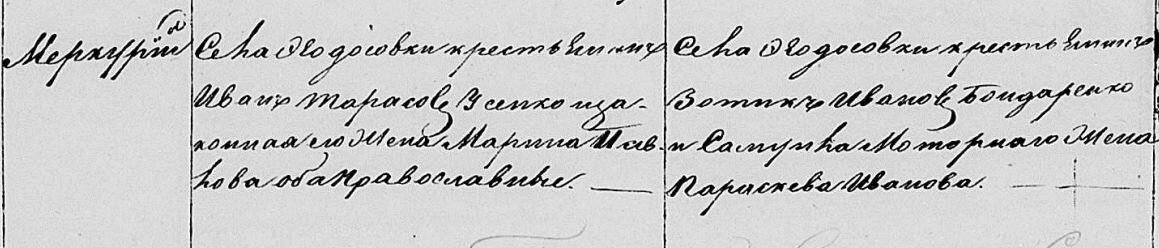 Меркурій
Села Ѳедосовки крестьянинъ
Иванъ Тарасовъ Усенко и за-
конная его жена Марина Пав-
лова оба православные.
Села Ѳедосовки крестьянинъ
Зотикъ Ивановъ Бондаренко
и Самуила Моторнаго жена
Параскева Иванова.